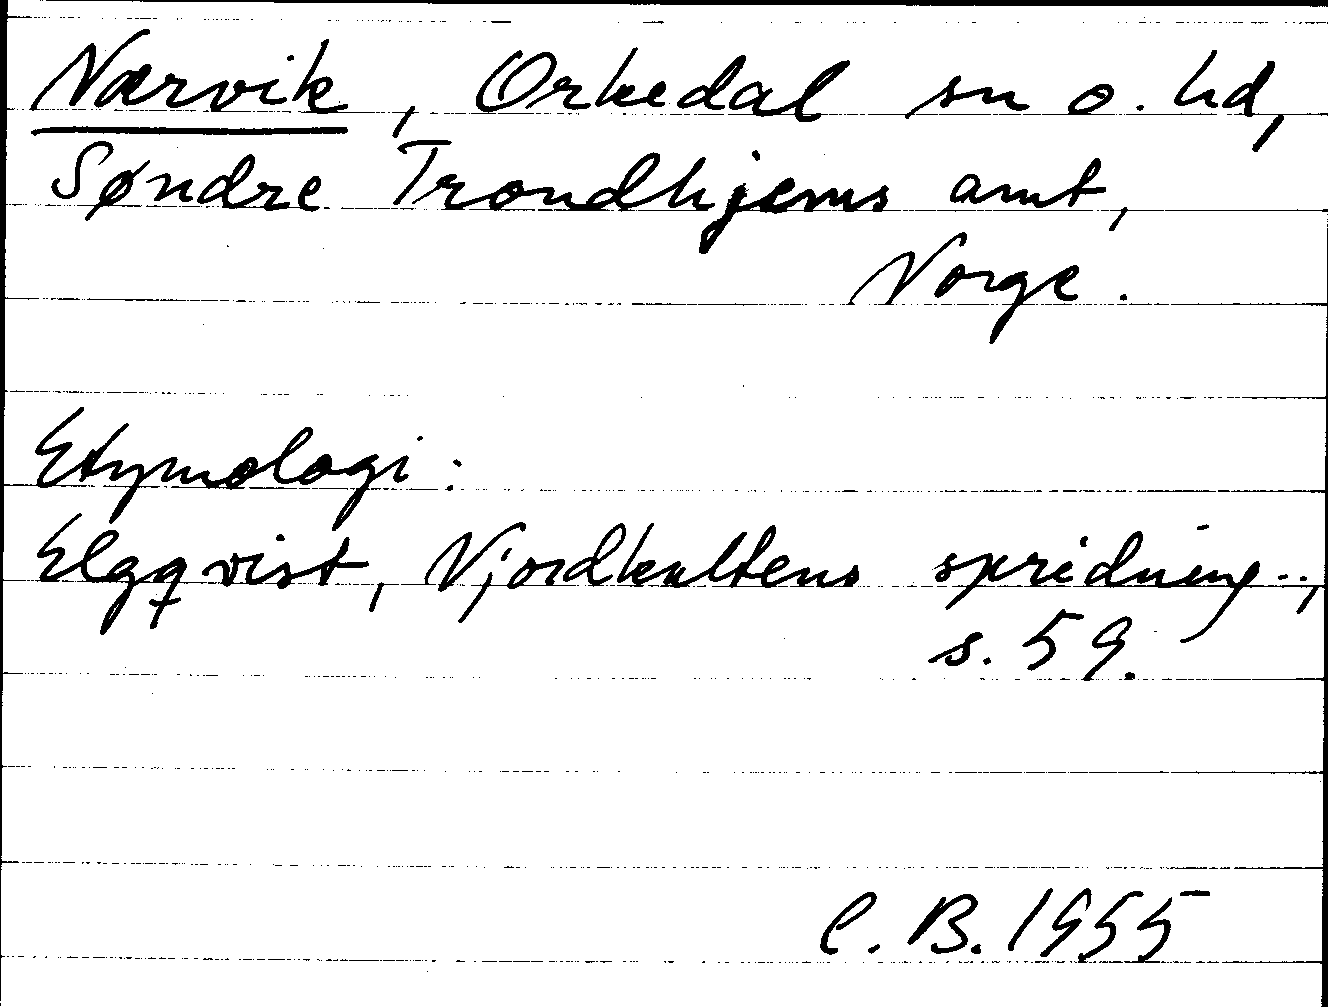 Nærvik, Orkedal sn o. hd,
Søndre Trondhjems amt,
Norge.
Etymologi:
Elgqvist, Njordkultens spridning..,
s. 59.
C. B. 1955